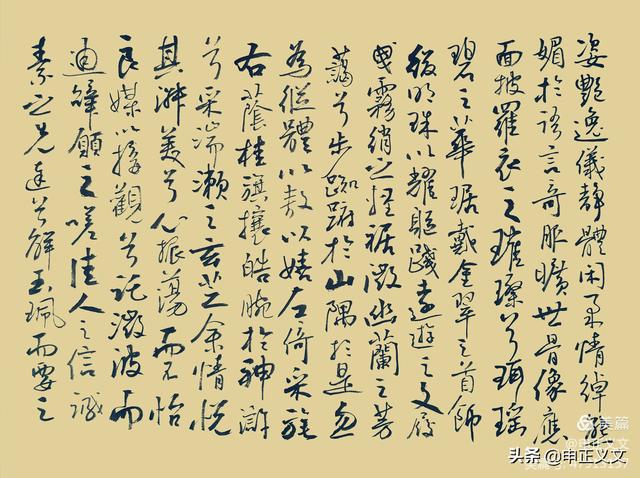 姿艷逸儀靜體闲柔情綽態
媚於語言奇服曠世骨像應
面披羅衣之璀璨兮珥瑤
碧之華琚戴金翠之首飾
綴明珠以耀軀踐遠遊之文履
曳霧綃之輕裾微幽蘭之芳
藹兮步踟躕於山隅於是忽
為縱體以敖以嬉左倚采旄
右蔭桂旗攘皓腕於神滸
兮采湍瀨之玄芝余情悅
其淑美兮心振蕩而不怡
良媒以接觀兮託微波而
通辭願之嗟佳人之信誠
素之先達兮解玉珮而要之
美篇
头条 @申正义文